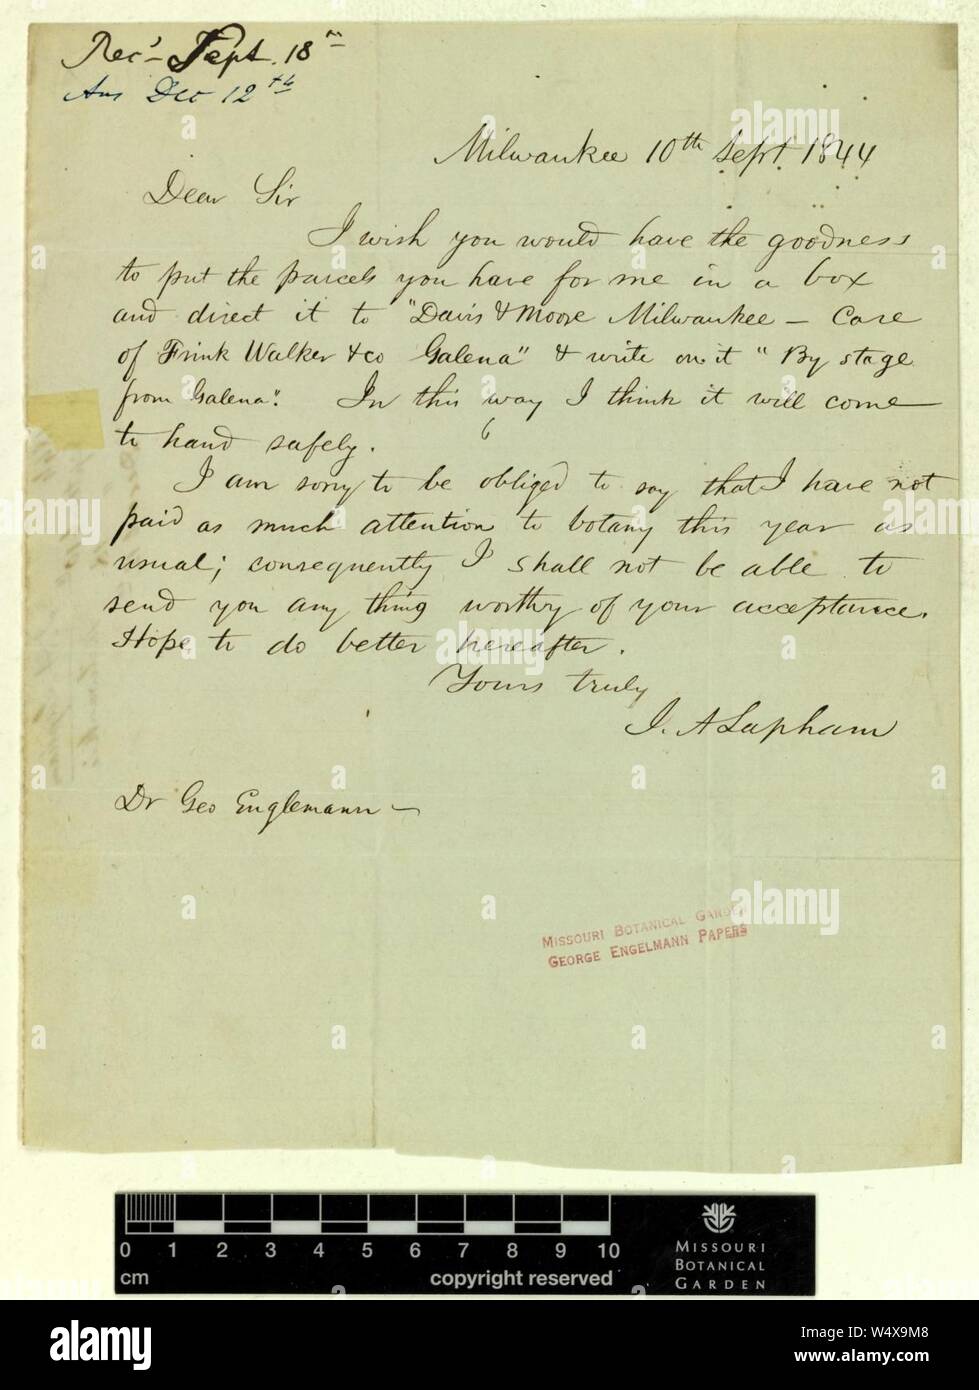 Rec'd Sept. 18th
Ans Dec 12th
Milwaukee 10th Sept. 1844
Dear Sir
I wish you would have the goodness
to put the parcels you have for me in a box
and direct it to "Davis & Moore Milwaukee — Care
of Frink Walker & co Galena" & write on it "By stage
from Galena". In this way I think it will come
to hand safely.
I am sorry to be obliged to say that I have not
paid as much attention to botany this year as
usual; consequently I shall not be able to
send you any thing worthy of your acceptance.
Hope to do better hereafter.
Yours truly
I. A Lapham
Dr Geo Englemann —
MISSOURI BOTANICAL GARDEN
GEORGE ENGELMANN PAPERS
0 1 2 3 4 5 6 7 8 9 10
cm
copyright reserved
MISSOURI
BOTANICAL
GARDEN
alamy
Image ID: W4X9M8
www.alamy.com